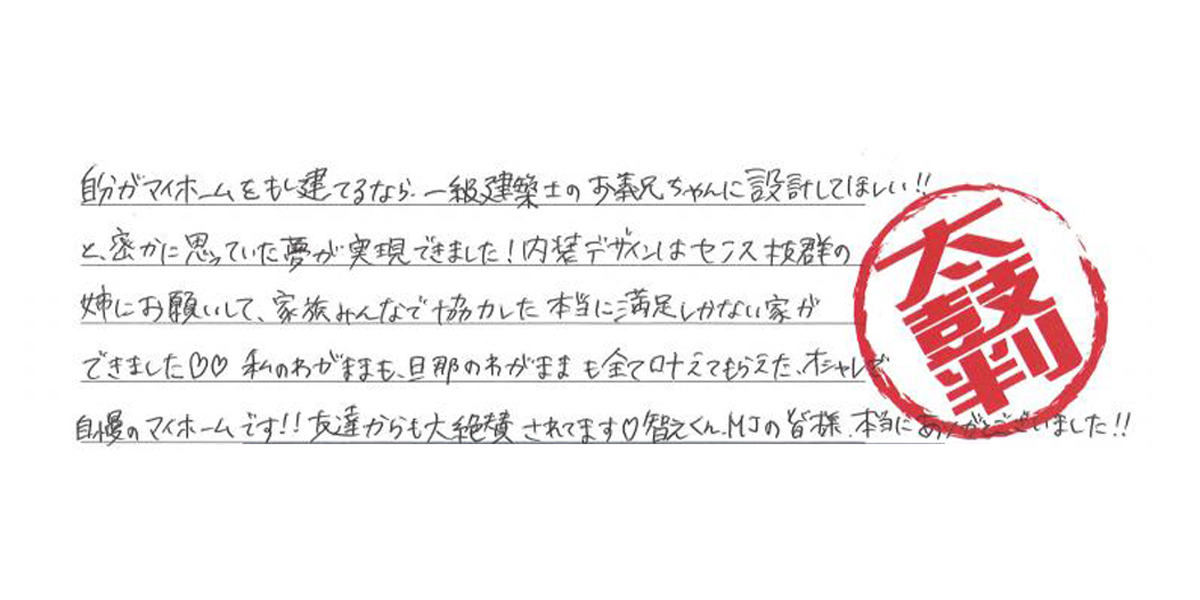 自分がマイホームをもし建てるなら、一級建築士のお義兄ちゃんに設計してほしい!!
と、密かに思っていた夢が実現できました!内装デザインはセンス抜群の
姉にお願いして、家族みんなで協力した本当に満足しかない家が
できました♡♡ 私のわがままも、旦那のわがままも全て叶えてもらえた、オシャレで
自慢のマイホームです!!友達からも大絶賛されてます♡智えくん、MJの皆様、本当にありがとうございました!!
太鼓判